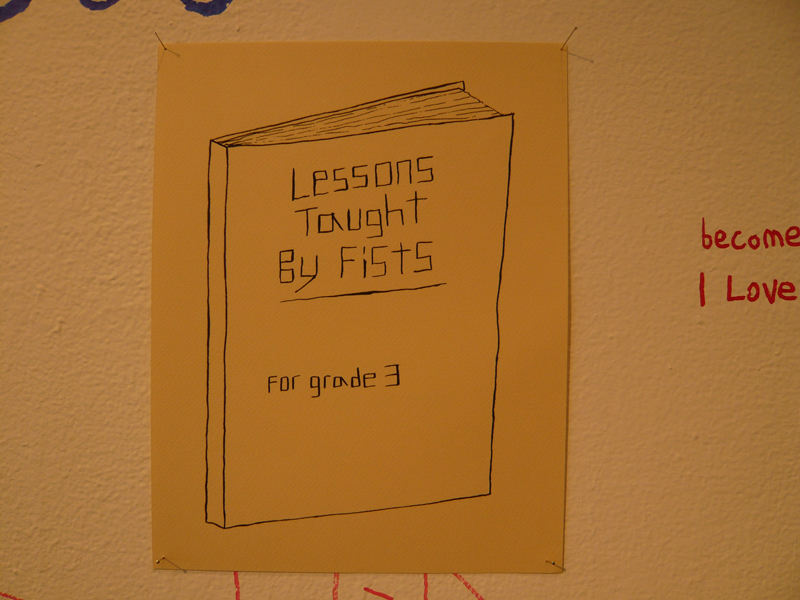 Lessons
Taught
By Fists
For grade 3
become
I Love